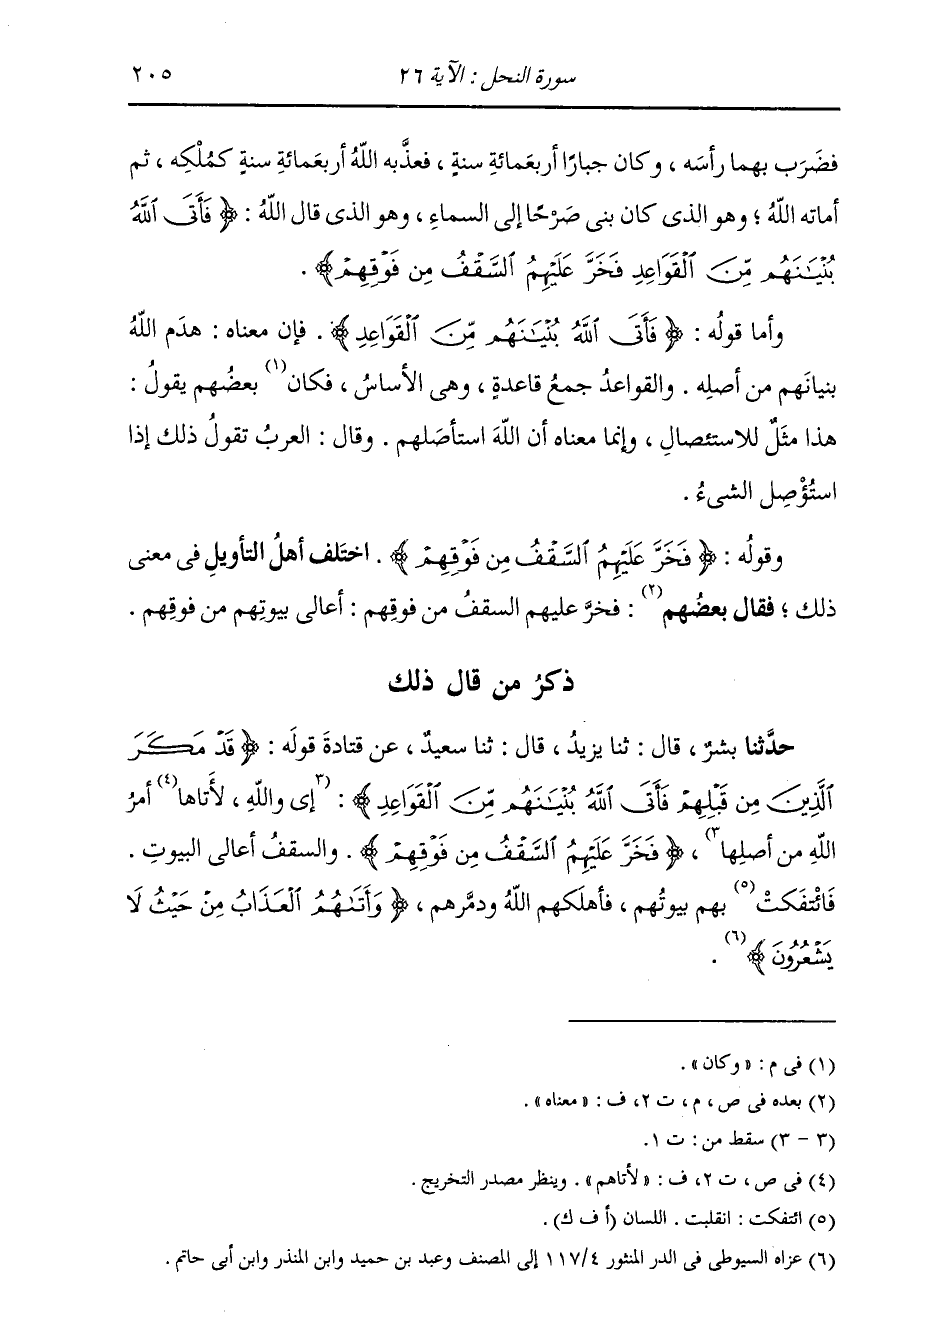 سورة النحل : الآية ٢٦ ٢٠٥
فضَرَب بهما رأسَه ، وكان جبارًا أربعَمائةِ سنةٍ ، فعذَّبه اللَّهُ أربعَمائةِ سنةٍ كمُلْكِه ، ثم
أماته اللَّهُ ؛ وهو الذى كان بنى صَرْحًا إلى السماءِ ، وهو الذى قال اللَّهُ : ﴿ فَأَتَى ٱللَّهُ
بُنْيَـٰنَهُم مِّنَ ٱلْقَوَاعِدِ فَخَرَّ عَلَيْهِمُ ٱلسَّقْفُ مِن فَوْقِهِمْ ﴾ .
وأما قولُه : ﴿ فَأَتَى ٱللَّهُ بُنْيَـٰنَهُم مِّنَ ٱلْقَوَاعِدِ ﴾ . فإن معناه : هدَم اللَّهُ
بنيانَهم من أصلِه . والقواعدُ جمعُ قاعدةٍ ، وهى الأساسُ ، فكان(١) بعضُهم يقولُ :
هذا مثَلٌ للاستئصالِ ، وإنما معناه أن اللَّهَ استأصَلهم . وقال : العربُ تقولُ ذلك إذا
استُؤْصِل الشىءُ .
وقولُه : ﴿ فَخَرَّ عَلَيْهِمُ ٱلسَّقْفُ مِن فَوْقِهِمْ ﴾ . اختَلف أهلُ التأويلِ فى معنى
ذلك ؛ فقال بعضُهم(٢) : فخرَّ عليهم السقفُ من فوقِهم : أعالى بيوتِهم من فوقِهم .
ذكرُ من قال ذلك
حدَّثنا بشرٌ ، قال : ثنا يزيدُ ، قال : ثنا سعيدٌ ، عن قتادةَ قولَه : ﴿ قَدْ مَكَرَ
ٱلَّذِينَ مِن قَبْلِهِمْ فَأَتَى ٱللَّهُ بُنْيَـٰنَهُم مِّنَ ٱلْقَوَاعِدِ ﴾ : (٣إى واللَّهِ ، لأَتاها(٤) أمرُ
اللَّهِ من أصلِها٣) ، ﴿ فَخَرَّ عَلَيْهِمُ ٱلسَّقْفُ مِن فَوْقِهِمْ ﴾ . والسقفُ أعالى البيوتِ .
فَائْتفَكتْ(٥) بهم بيوتُهم ، فأهلَكهم اللَّهُ ودمَّرهم ، ﴿ وَأَتَىٰهُمُ ٱلْعَذَابُ مِنْ حَيْثُ لَا
يَشْعُرُونَ ﴾(٦) .
(١) فى م : « وكان » .
(٢) بعده فى ص ، م ، ت ٢، ف : « معناه » .
(٣ - ٣) سقط من : ت ١.
(٤) فى ص ، ت ٢، ف : « لأتاهم » . وينظر مصدر التخريج .
(٥) ائتفكت : انقلبت . اللسان (أ ف ك) .
(٦) عزاه السيوطى فى الدر المنثور ١١٧/٤ إلى المصنف وعبد بن حميد وابن المنذر وابن أبى حاتم .